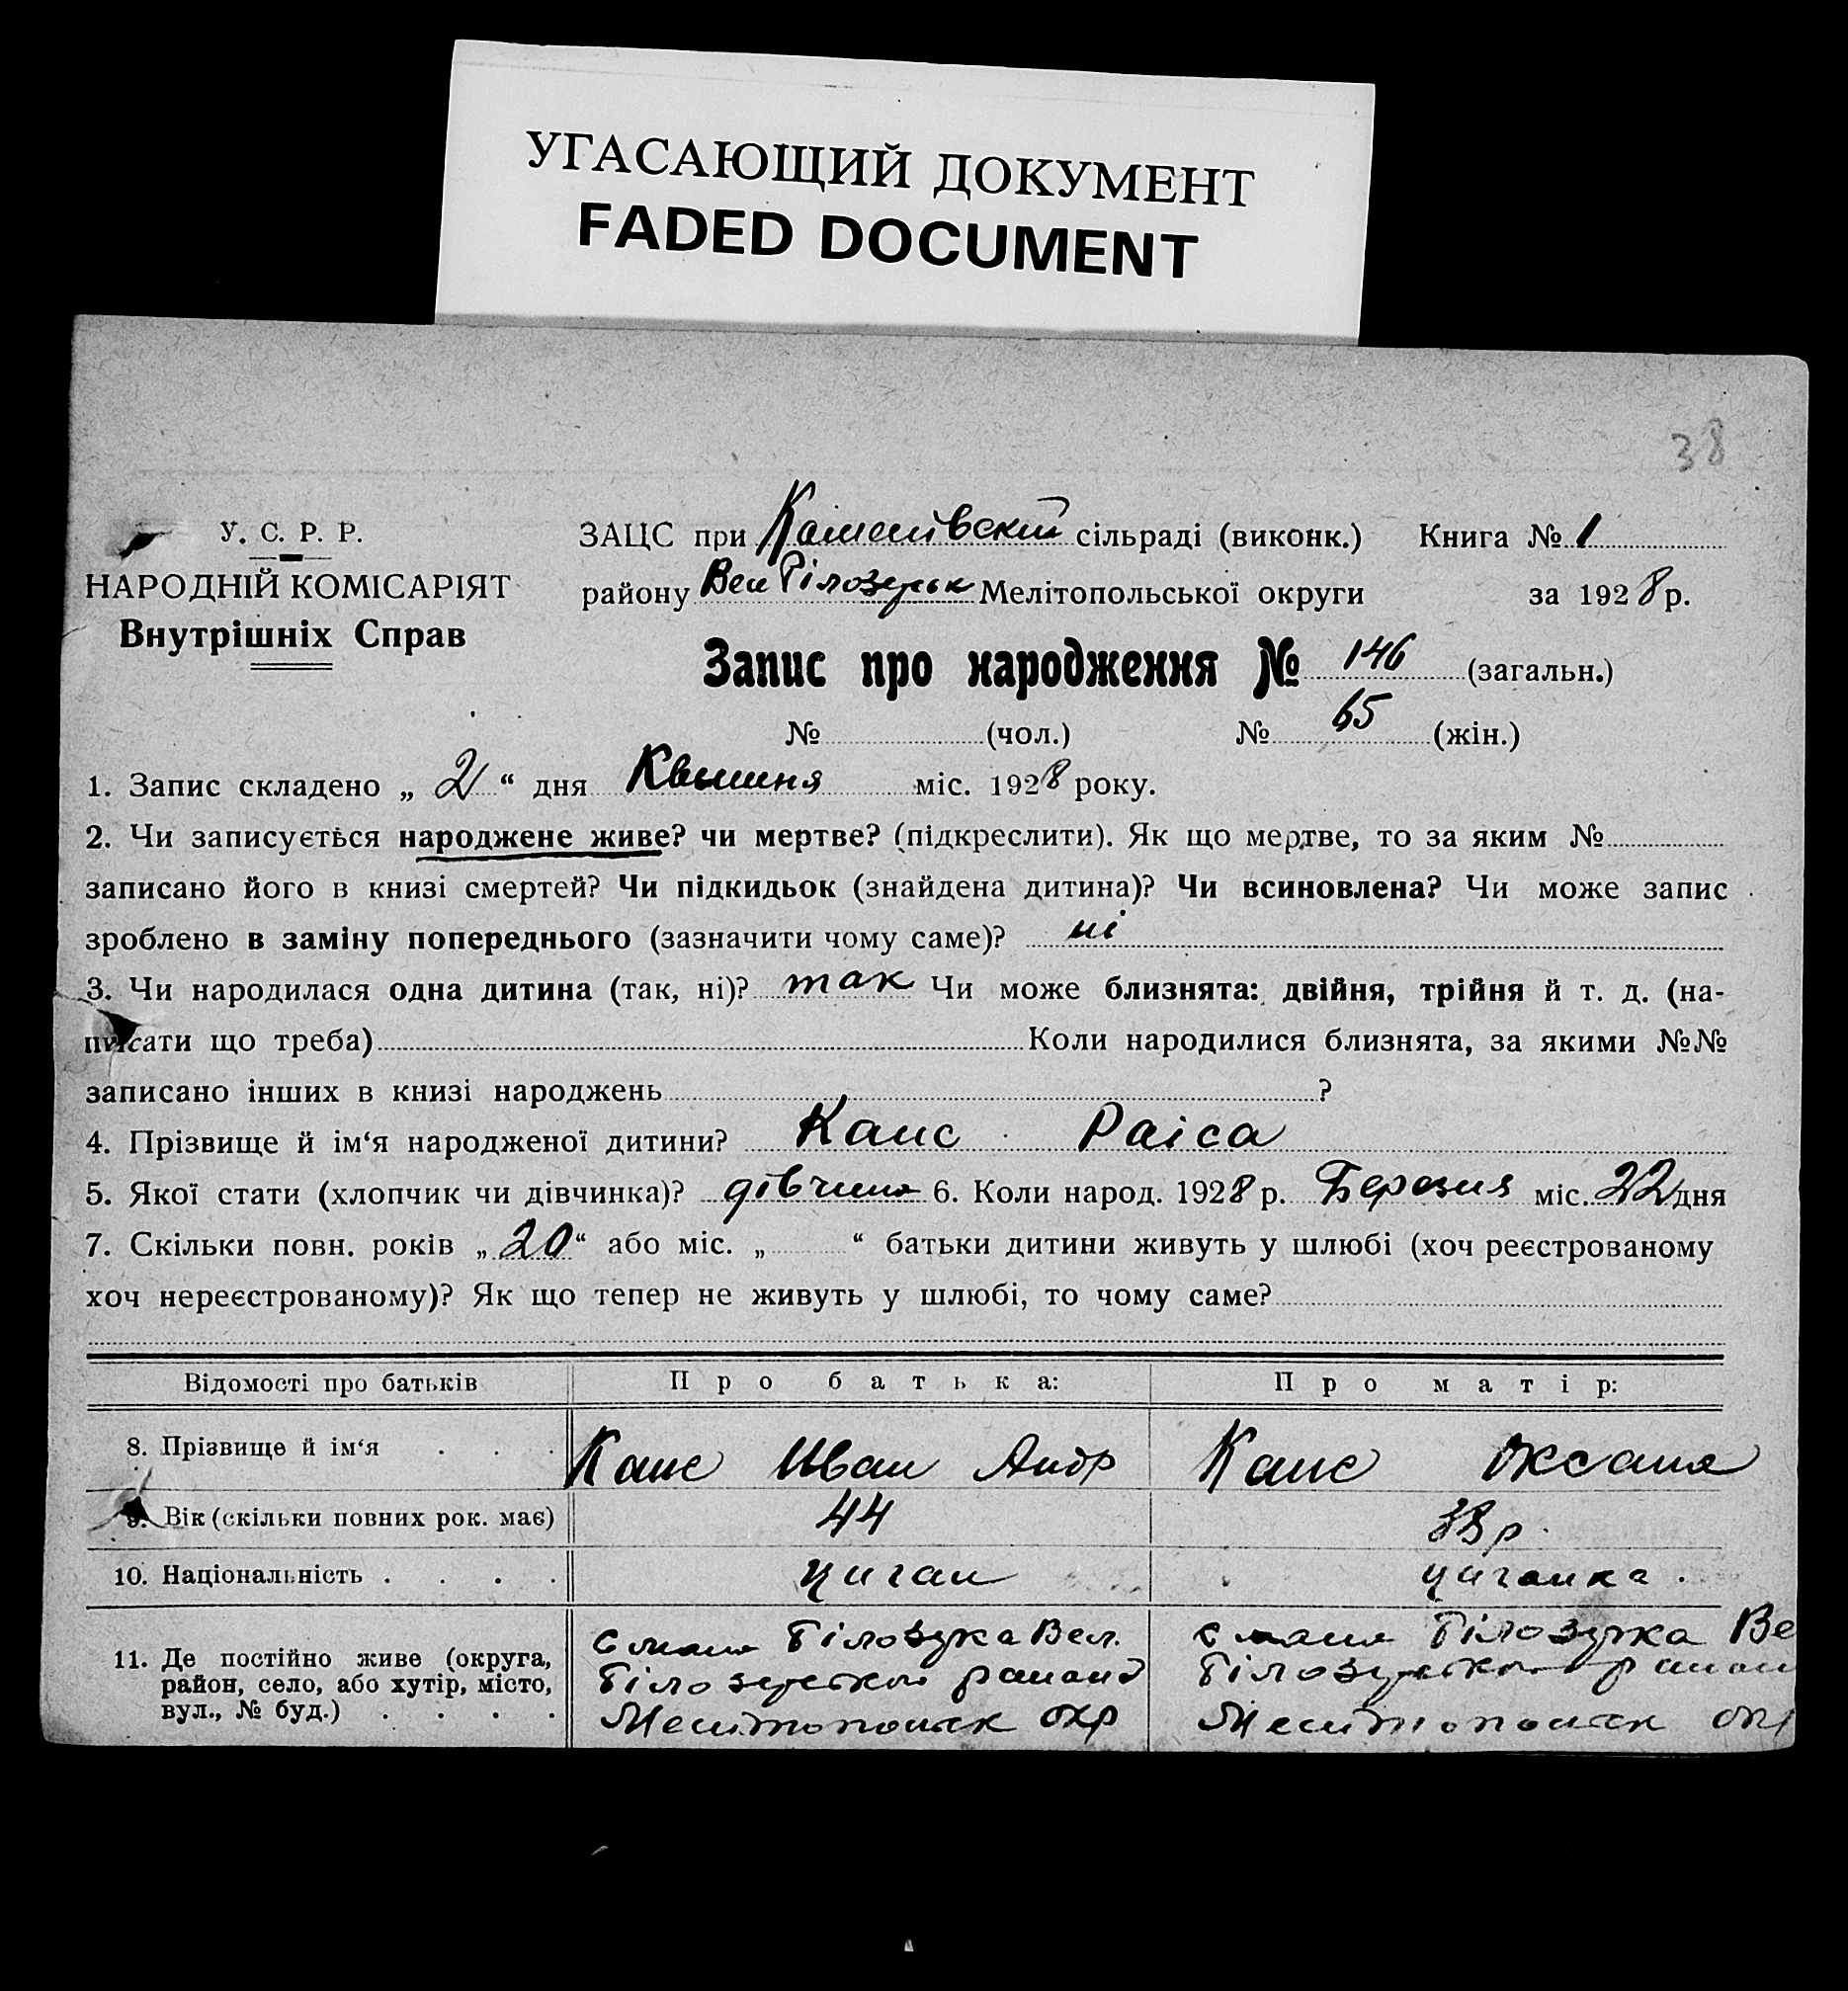 УГАСАЮЩИЙ ДОКУМЕНТ
FADED DOCUMENT
38
У. С. Р. Р.
НАРОДНІЙ КОМІСАРІЯТ
Внутрішніх Справ
ЗАЦС при сільраді (виконк.) Книга № 1
району Вел Білозерськ Мелітопольської округи за 1928 р.
Запис про народження № 146 (загальн.)
№ (чол.) № 65 (жін.)
1. Запис складено „ 2 “ дня Квитня міс. 1928 року.
2. Чи записується народжене живе? чи мертве? (підкреслити). Як що мертве, то за яким №
записано його в книзі смертей? Чи підкидьок (знайдена дитина)? Чи всиновлена? Чи може запис
зроблено в заміну попереднього (зазначити чому саме)? ні
3. Чи народилася одна дитина (так, ні)? так Чи може близнята: двійня, трійня й т. д. (на-
писати що треба) Коли народилися близнята, за якими №№
записано інших в книзі народжень ?
4. Прізвище й ім‘я народженої дитини? Канс Раіса
5. Якої стати (хлопчик чи дівчинка)? дівчина 6. Коли народ. 1928 р. Березня міс. 22 дня
7. Скільки повн. років „ 20 “ або міс. „ “ батьки дитини живуть у шлюбі (хоч реєстрованому
хоч нереєстрованому)? Як що тепер не живуть у шлюбі, то чому саме?
Відомості про батьків Про батька: Про матір:
8. Прізвище й ім‘я . . . Канс Иван Андр Канс Оксана
9. Вік (скільки повних рок. має) 44 38 р.
10. Національність . . . . циган циганка.
11. Де постійно живе (округа, район, село, або хутір, місто, вул., № буд.) . . . .
Білозірка Вел.
Білозерського району
Мелитопольськ окр
Білозірка Ве
Білозерського район
Мелитопольск